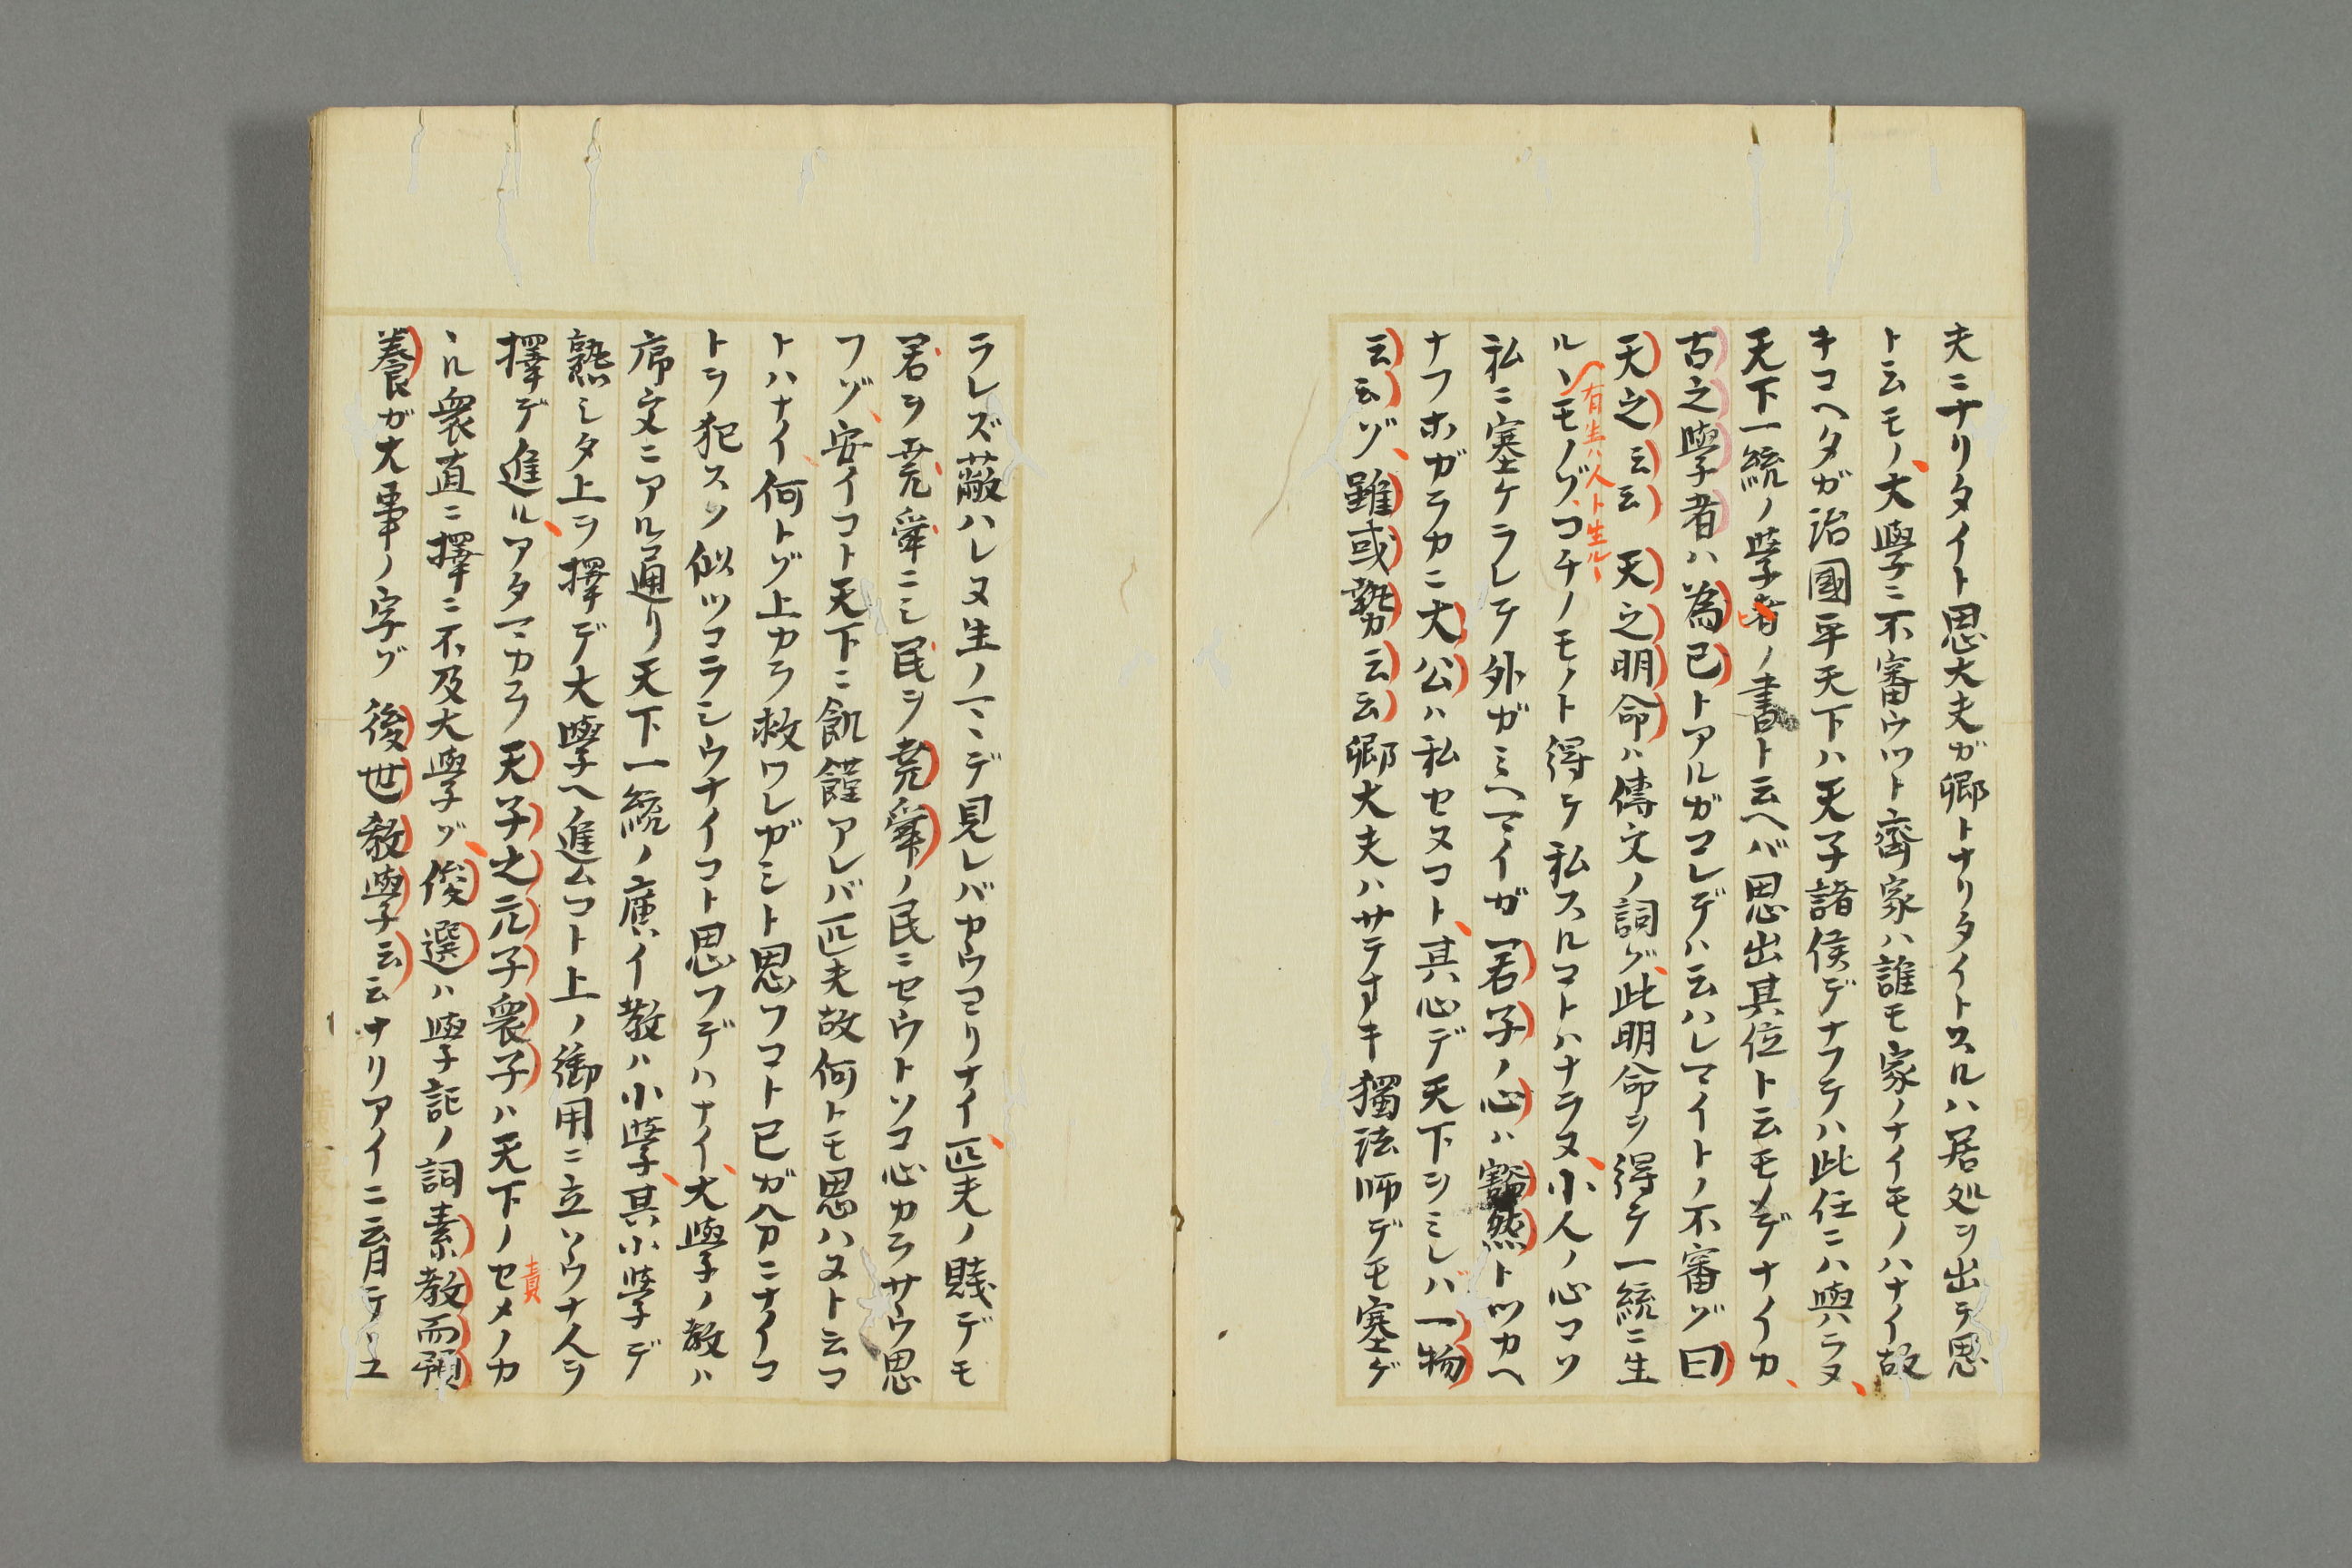 夫ニナリタイト思大夫ガ卿トナリタイトスルハ居処ヲ出テ思
ト云モノ大學ニ不審ウツト齊家ハ誰モ家ノナイモノハナイ故
キコヘタガ治國平天下ハ天子諸侯デナフテハ此任ニハ與ラヌ
天下一統ノ學者ノ書ト云ヘバ思出其位ト云モノデナイカ
古之學者ハ為己トアルガコレデハ云ハレマイトノ不審ゾ曰
天之云云天之明命ハ傳文ノ詞ゾ此明命ヲ得テ一統ニ生
有生ハ人ト生ル丶
ル丶モノゾコチノモノト得テ私スルコトハナラヌ小人ノ心コソ
私ニ塞ケラレテ外ガミヘマイガ君子ノ心ハ豁然トツカヘ
ナフホガラカニ大公ハ私セヌコト其心デ天下ヲミレバ一物
云云ゾ雖或勢云云卿大夫ハサテオキ獨法師デモ塞ゲ
ラレズ蔽ハレヌ生ノマヽデ見レバカウコリナイ匹夫ノ賤デモ
君ヲ堯舜ニシ民ヲ堯舜ノ民ニセウトソコ心カラサウ思
フゾ安イコト天下ニ飢饉アレバ匹夫故何トモ思ハヌト云コ
トハナイ何トゾ上カラ救ワレガシト思フコト已ガ分ニナイコ
トヲ犯スソ似ツコラシウナイコト思フデハナイ大學ノ教ハ
席文ニアル通リ天下一統ノ廣イ教ハ小學其小學デ
熟シタ上ヲ擇デ大學ヘ進ムコト上ノ御用ニ立ソウナ人ヲ
擇デ進ルアタマカラ天子之元子衆子ハ天下ノセメノカ
責
丶ル衆直ニ擇ニ不及大學ゾ俊選ハ學記ノ詞素教而預
養ガ大事ノ字ゾ後世教學云云ナリアイニ育テヽユ